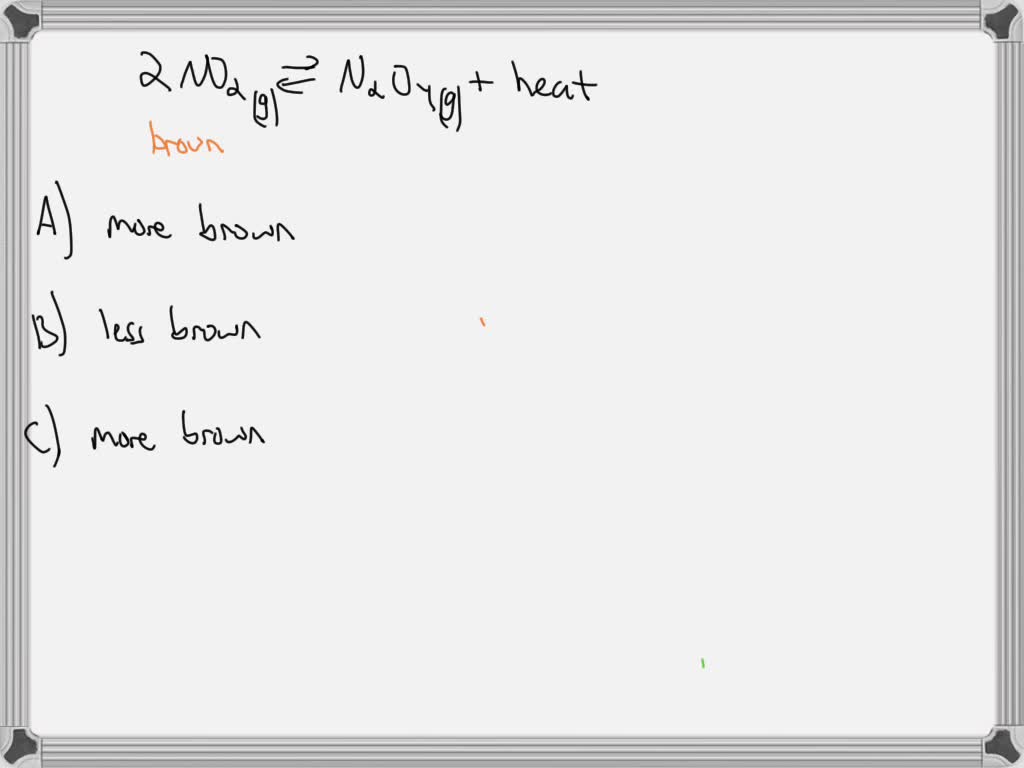 2NO₂(g) ⇌ N₂O₄(g) + heat
brown
A) more brown
B) less brown
C) more brown